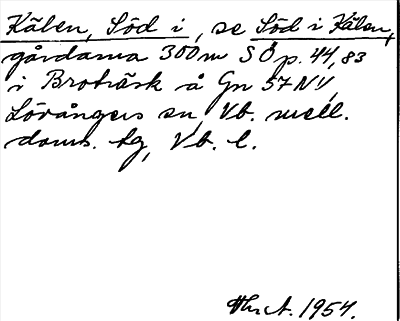 Kälen, Söd i, se Söd i Kälen,
gårdarna 300 m SÖ p. 44,83
i Broträsk å Gn 57 NV,
Lövångers sn, Vb. mell.
doms. tg, Vb. l.
1954.